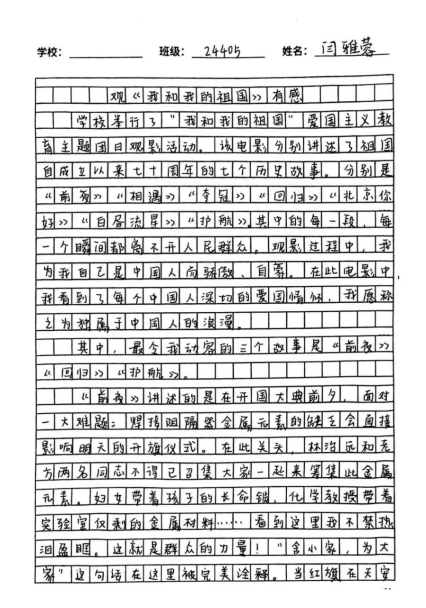 学校： 班级： 24405 姓名： 闫雅蓉
观《我和我的祖国》有感
学校举行了"我和我的祖国"爱国主义教
育主题团日观影活动。该电影分别讲述了祖国
自成立以来七十周年的七个历史故事。分别是
《前夜》《相遇》《夺冠》《回归》《北京你
好》《白昼流星》《护航》。其中的每一段，每
一个瞬间都离不开人民群众。观影过程中，我
为我自己是中国人而骄傲、自豪。在此电影中，
我看到了每个中国人深切的爱国情怀，我愿称
之为独属于中国人的浪漫。
其中，最令我动容的三个故事是《前夜》
《回归》《护航》。
《前夜》讲述的是在开国大典前夕，面对
一大难题：焊接阻隔器金属元素的缺乏会直接
影响明天的开旗仪式。在此关头，林治远和老
方两名同志不得已召集大家一起来筹集此金属
元素。妇女带着孩子的长命锁，化学教授带着
实验室仅剩的金属材料……看到这里我不禁热
泪盈眶。这就是群众的力量！"舍小家，为大
家"这句话在这里被完美诠释。当红旗在天安